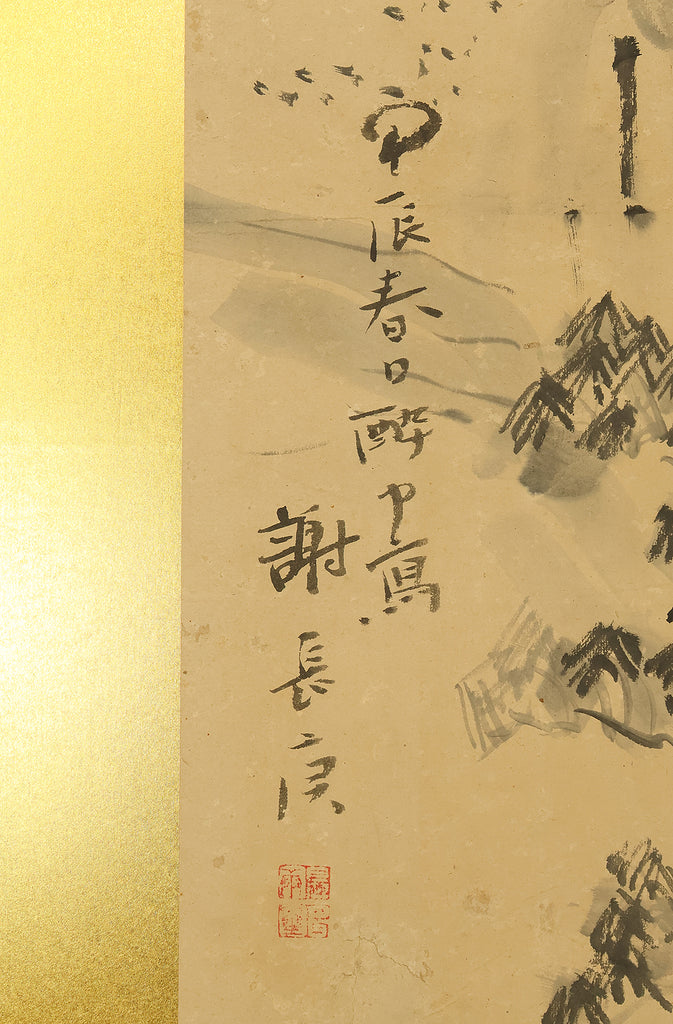 甲辰春日酔中寫
謝長庚